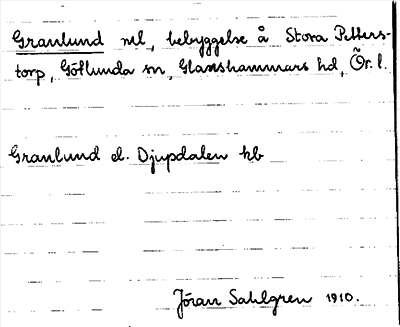 Granlund nl, bebyggelse å Stora Petters-
torp, Götlunda sn, Glanshammars hd, Ör. l.
Granlund el. Djupdalen hb
Jöran Sahlgren 1910.